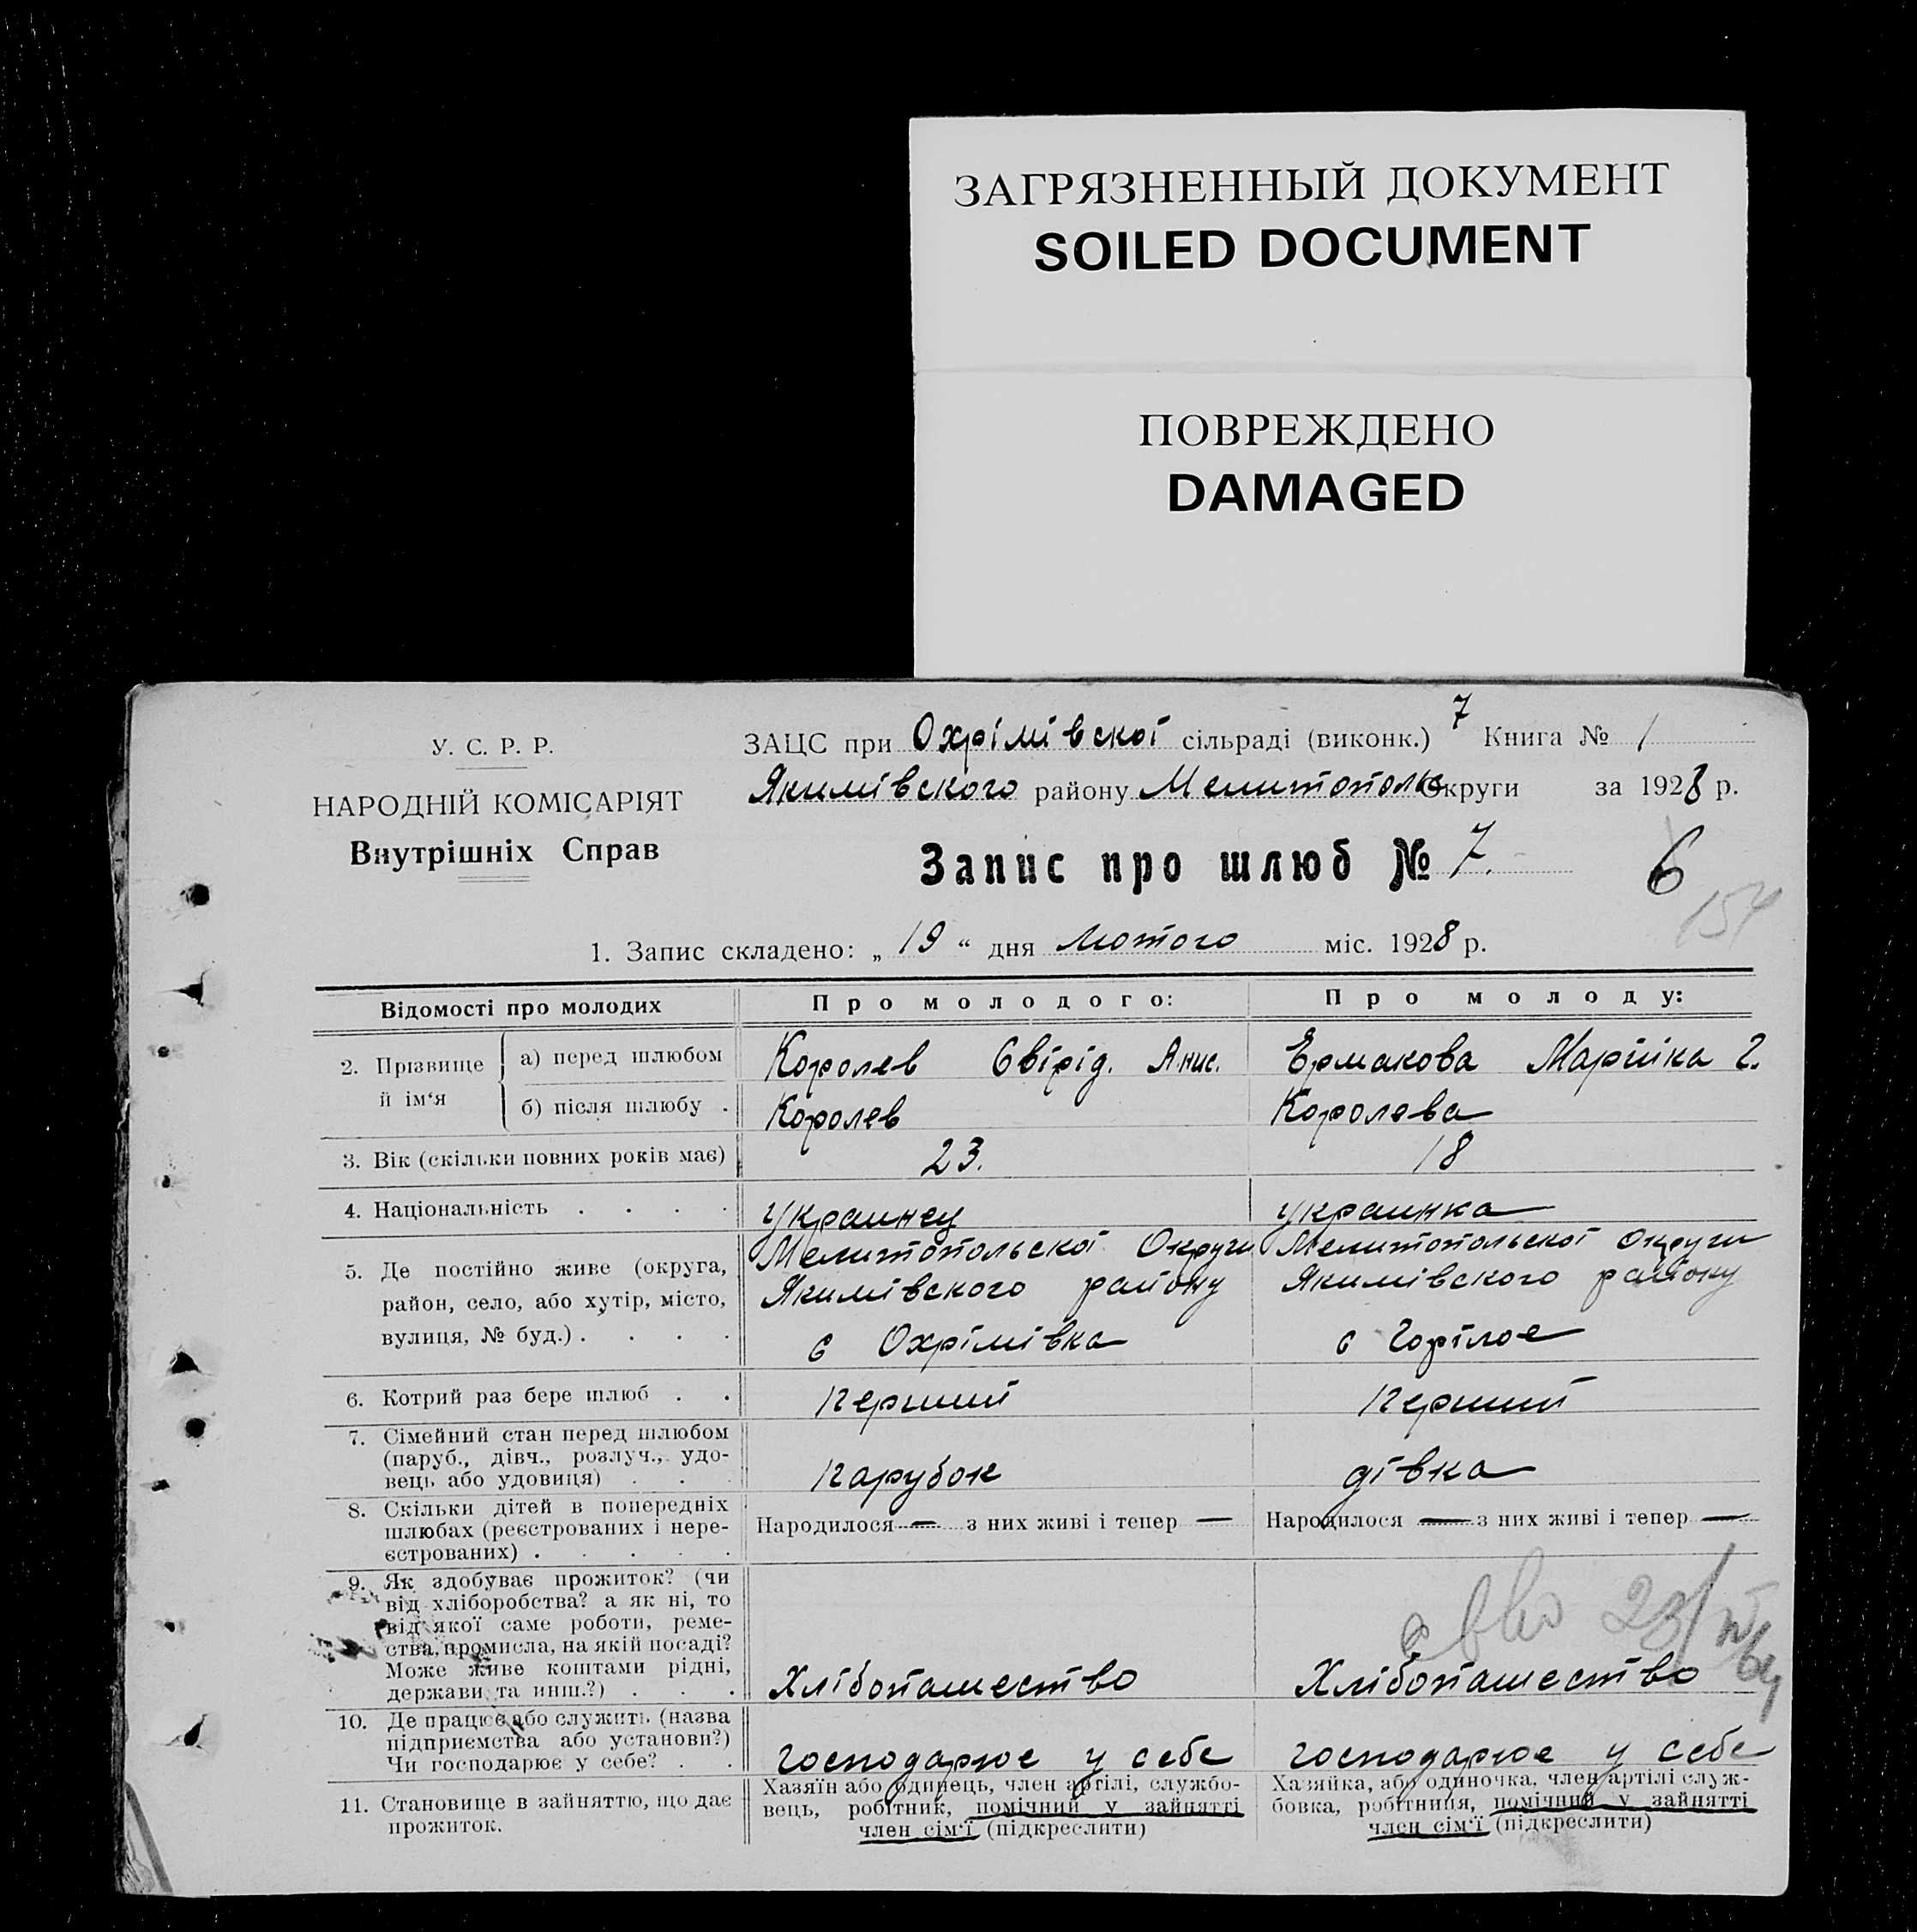 ЗАГРЯЗНЕННЫЙ ДОКУМЕНТ
SOILED DOCUMENT
ПОВРЕЖДЕНО
DAMAGED
У. С. Р. Р.
НАРОДНІЙ КОМІСАРІЯТ
Внутрішніх Справ
7
ЗАЦС при Охрімівскої сільраді (виконк.) Книга № 1
Якимівского району Мелитополь Округи за 1928 р.
Запис про шлюб № 7.
6
154
1. Запис складено: „ 19 “ дня лютого міс. 1928 р.
Відомості про молодих Про молодого: Про молоду:
2. Прізвище й ім‘я
а) перед шлюбом Королев Свірід. Анис. Ермакова Марійка Г.
б) після шлюбу . Королев Королева
3. Вік (скільки повних років має) 23. 18
4. Національність . . . . украинец украинка
5. Де постійно живе (округа,
район, село, або хутір, місто,
вулиця, № буд.) . . . .
Мелитопольскої Округи
Якимівского району
с Охрімівка
Мелитопольскої округи
Якимівского району
с Горілое
6. Котрий раз бере шлюб . . перший перший
7. Сімейний стан перед шлюбом
(паруб., дівч., розлуч., удо-
вець або удовиця) . . .
парубок дівка
8. Скільки дітей в попередніх
шлюбах (реєстрованих і нере-
єстрованих) . . . . .
Народилося — з них живі і тепер — Народилося — з них живі і тепер —
9. Як здобуває прожиток? (чи
від хліборобства? а як ні, то
від якої саме роботи, реме-
ства, промисла, на якій посаді?
Може живе коштами рідні,
держави та инш.?) . . .
Хлібопашество Хлібопашество
10. Де працює або служить (назва
підприємства або установи?)
Чи господарює у себе? . .
господарює у себе господарює у себе
11. Становище в зайняттю, що дає
прожиток.
Хазяїн або одинець, член артілі, службо-
вець, робітник, помічний у зайнятті
член сім‘ї (підкреслити)
Хазяйка, або одиночка, член артілі служ-
бовка, робітниця, помічний у зайнятті
член сім‘ї (підкреслити)